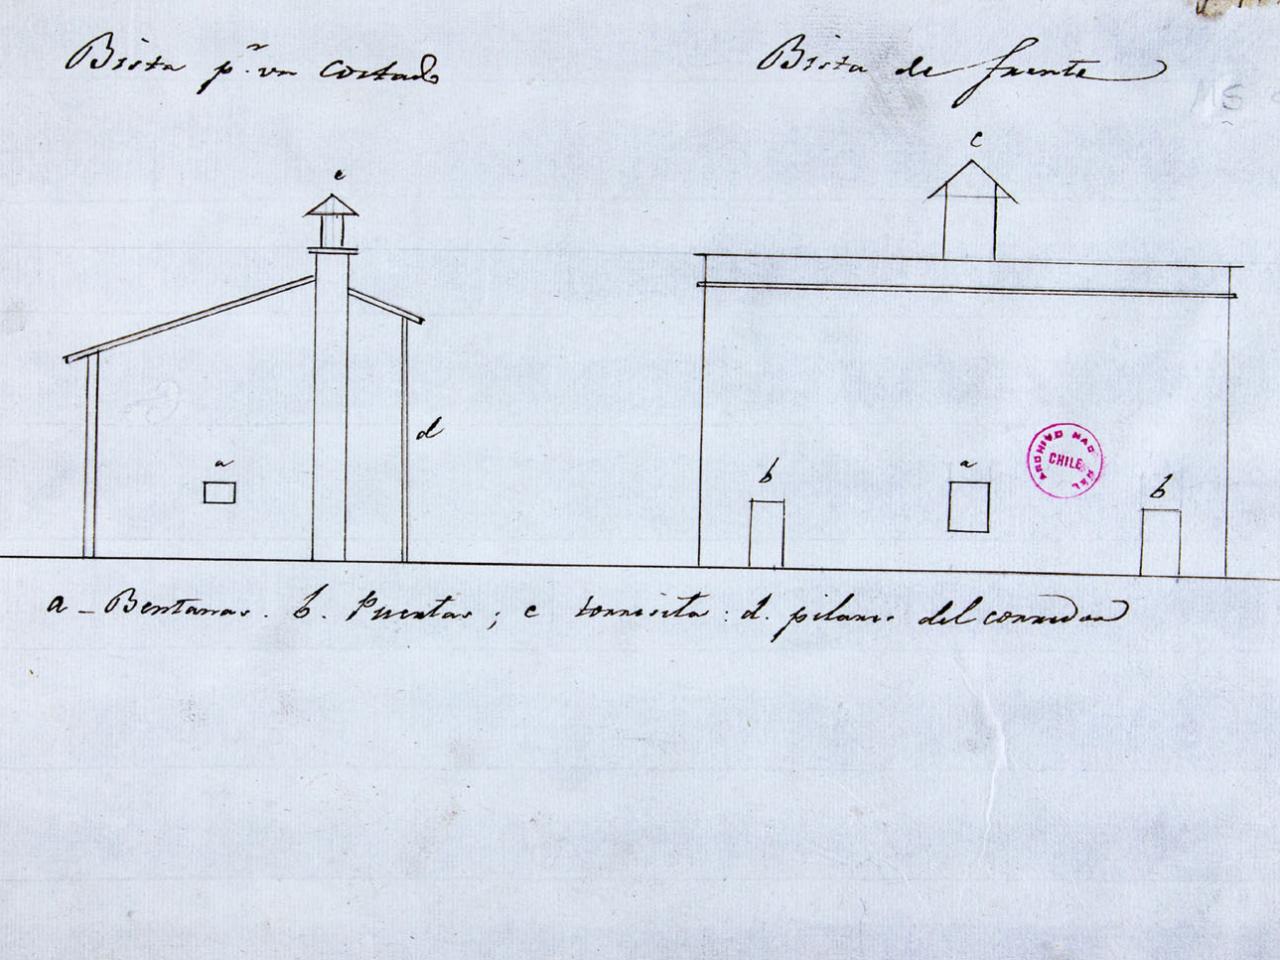 Bista pr. un costado
Bista de frente
c
c
d
a
b
a
b
ARCHIVO NACIONAL
CHILE
a - Bentanas. b. Puertas; c torresita: d. pilares del corredor